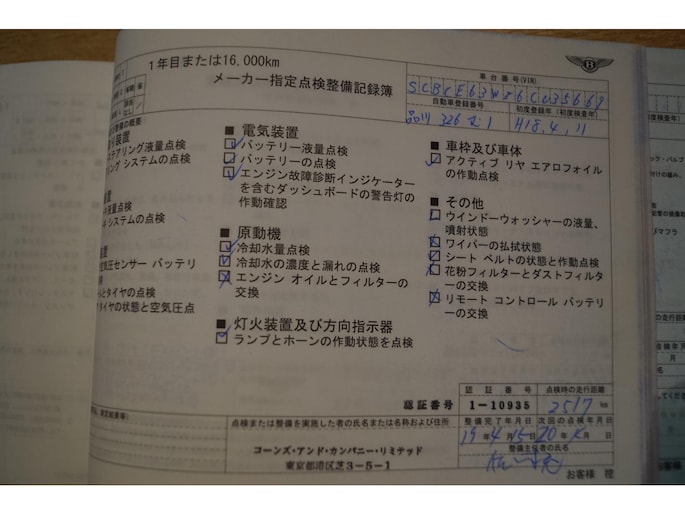 1年目または16,000km
メーカー指定点検整備記録簿
車台番号(VIN)
SCBCE63W
自動車登録番号
初度登録年(初度検査年)
品川 326 む 1
H18.4.11
ステアリング液量点検
システムの点検
液量点検
システムの点検
空気圧センサー バッテリ
タイヤの点検
タイヤの状態と空気圧点
■ 電気装置
バッテリー液量点検
バッテリーの点検
エンジン故障診断インジケーター
を含むダッシュボードの警告灯の
作動確認
■ 原動機
冷却水量点検
冷却水の濃度と漏れの点検
エンジン オイルとフィルターの
交換
■ 灯火装置及び方向指示器
ランプとホーンの作動状態を点検
■ 車枠及び車体
アクティブ リヤ エアロフォイル
の作動点検
■ その他
ウインドーウォッシャーの液量、
噴射状態
ワイパーの払拭状態
シート ベルトの状態と作動点検
花粉フィルターとダストフィルタ
ーの交換
リモート コントロール バッテリ
ーの交換
認証番号
点検時の走行距離
認証番号
1-10935
2517 km
点検または整備を実施した者の氏名または名称および住所
整備完了年月日
次回の点検年月日
19年4月15日
20年4月 日
コーンズ・アンド・カンパニー・リミテッド
東京都港区芝3-5-1
整備主任者の氏名
お客様 控